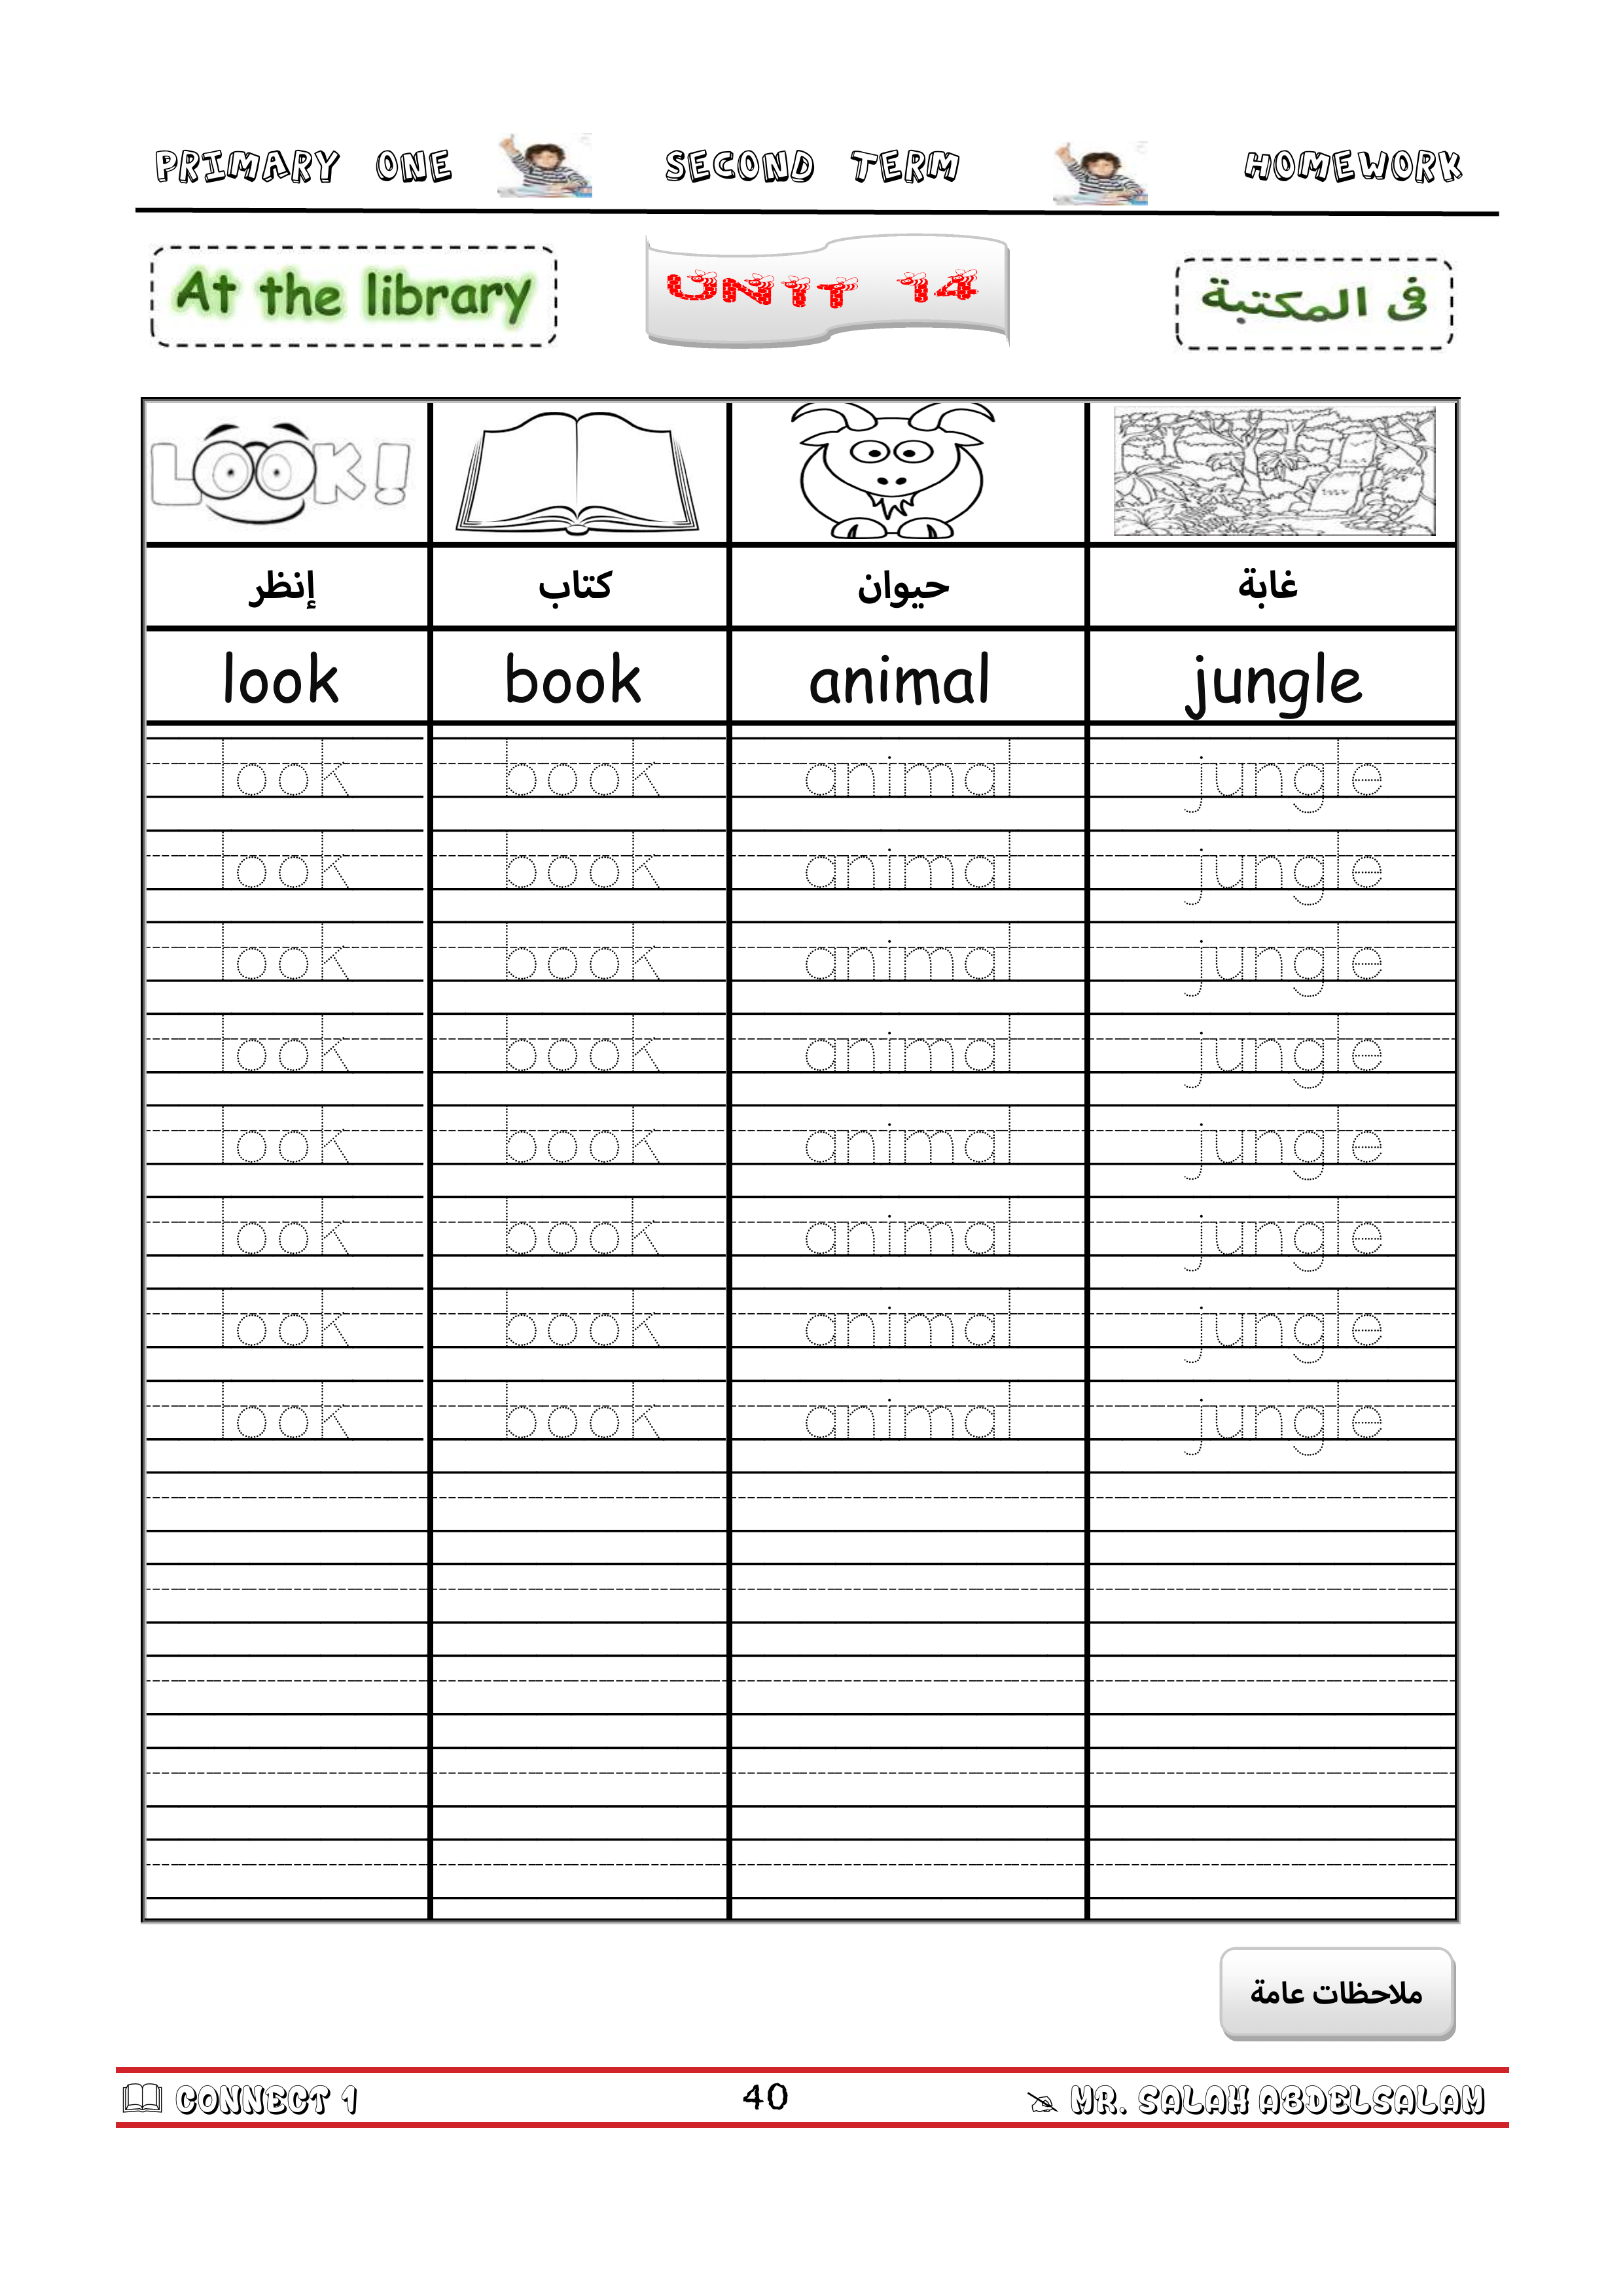 PRIMARY ONE SECOND TERM HOMEWORK
At the library UNIT 14 فى المكتبة
LOOK!
إنظر كتاب حيوان غابة
look book animal jungle
look book animal jungle
look book animal jungle
look book animal jungle
look book animal jungle
look book animal jungle
look book animal jungle
look book animal jungle
look book animal jungle
ملاحظات عامة
CONNECT 1 40 MR. SALAH ABDELSALAM